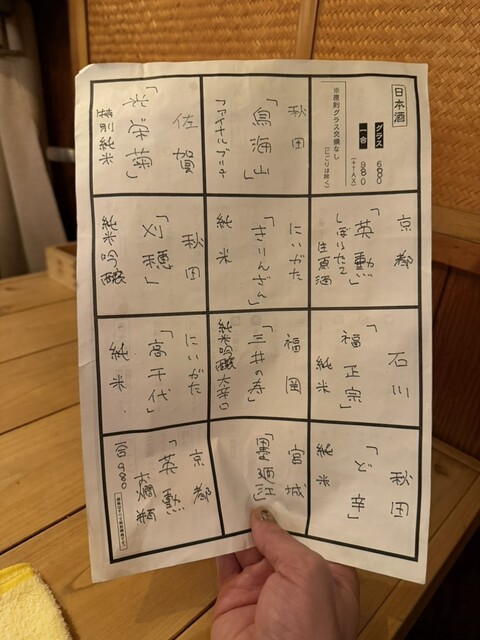 日本酒
グラス 680
一合 980
(+TAX)
※原則グラス交換なし
(にごりは除く)
京都
「英勲」
しぼりたて
生原酒
石川
「福正宗」
純米
秋田
「ど辛」
純米
秋田
「鳥海山」
にいがた
「きりんざん」
純米
福岡
「三井の寿」
純米吟醸大辛口
宮城
「墨廼江」
佐賀
「光栄菊」
特別純米
秋田
「刈穂」
純米吟醸
にいがた
「高千代」
純米
京都
「英勲」
お燗瓶
一合980